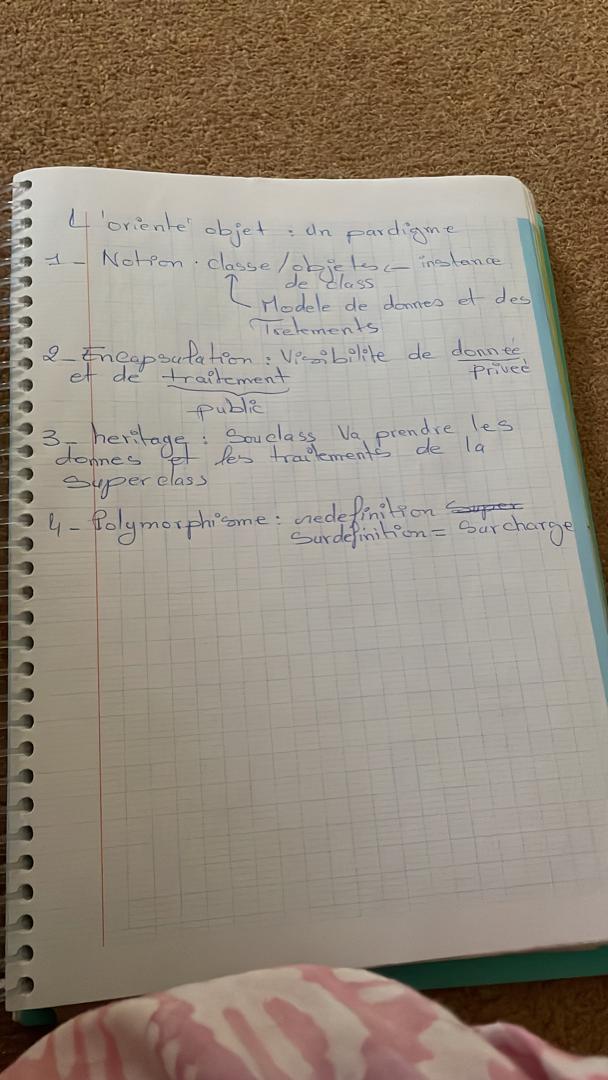 L'orienté objet : un pardigme
1 - Notion . classe / objetes ← instance
de class
Modele de donnes et des
Tretements
2 - Encapsulation : Visibilite de donneé
et de traitement priveé
public
3 - heritage : Souclass Va prendre les
donnes et les traitements de la
superclass
4 - Polymorphisme : redefinition super
Surdefinition = Surcharge